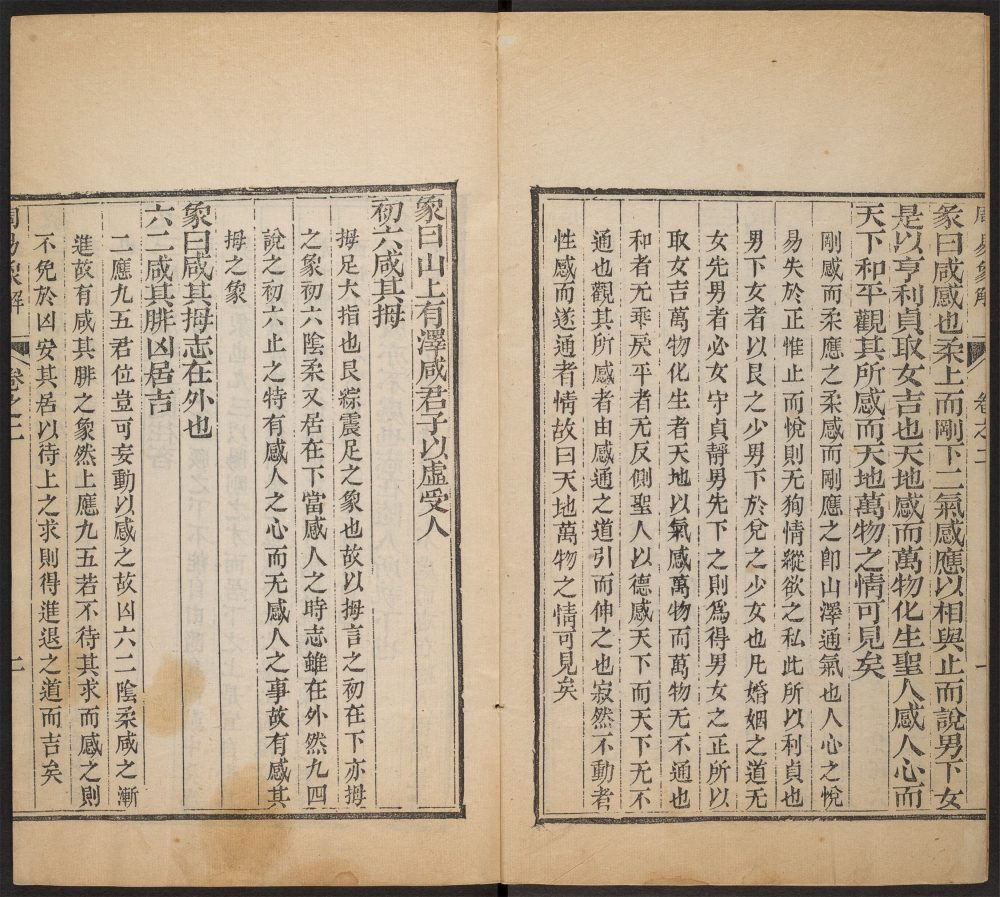 周易象解 卷之二 一
彖曰咸感也柔上而剛下二氣感應以相與止而說男下女
是以亨利貞取女吉也天地感而萬物化生聖人感人心而
天下和平觀其所感而天地萬物之情可見矣
剛感而柔應之柔感而剛應之卽山澤通氣也人心之悅
易失於正惟止而悅則无狥情縱欲之私此所以利貞也
男下女者以艮之少男下於兌之少女也凡婚姻之道无
女先男者必女守貞靜男先下之則爲得男女之正所以
取女吉萬物化生者天地以氣感萬物而萬物无不通也
和者无乖戾平者无反側聖人以德感天下而天下无不
通也觀其所感者由感通之道引而伸之也寂然不動者
性感而遂通者情故曰天地萬物之情可見矣
象曰山上有澤咸君子以虛受人
初六咸其拇
拇足大指也艮綜震足之象也故以拇言之初在下亦拇
之象初六陰柔又居在下當感人之時志雖在外然九四
說之初六止之特有感人之心而无感人之事故有感其
拇之象
象曰咸其拇志在外也
六二咸其腓凶居吉
二應九五君位豈可妄動以感之故凶六二陰柔咸之漸
進故有咸其腓之象然上應九五若不待其求而感之則
不免於凶安其居以待上之求則得進退之道而吉矣
周易象解 卷之二 二